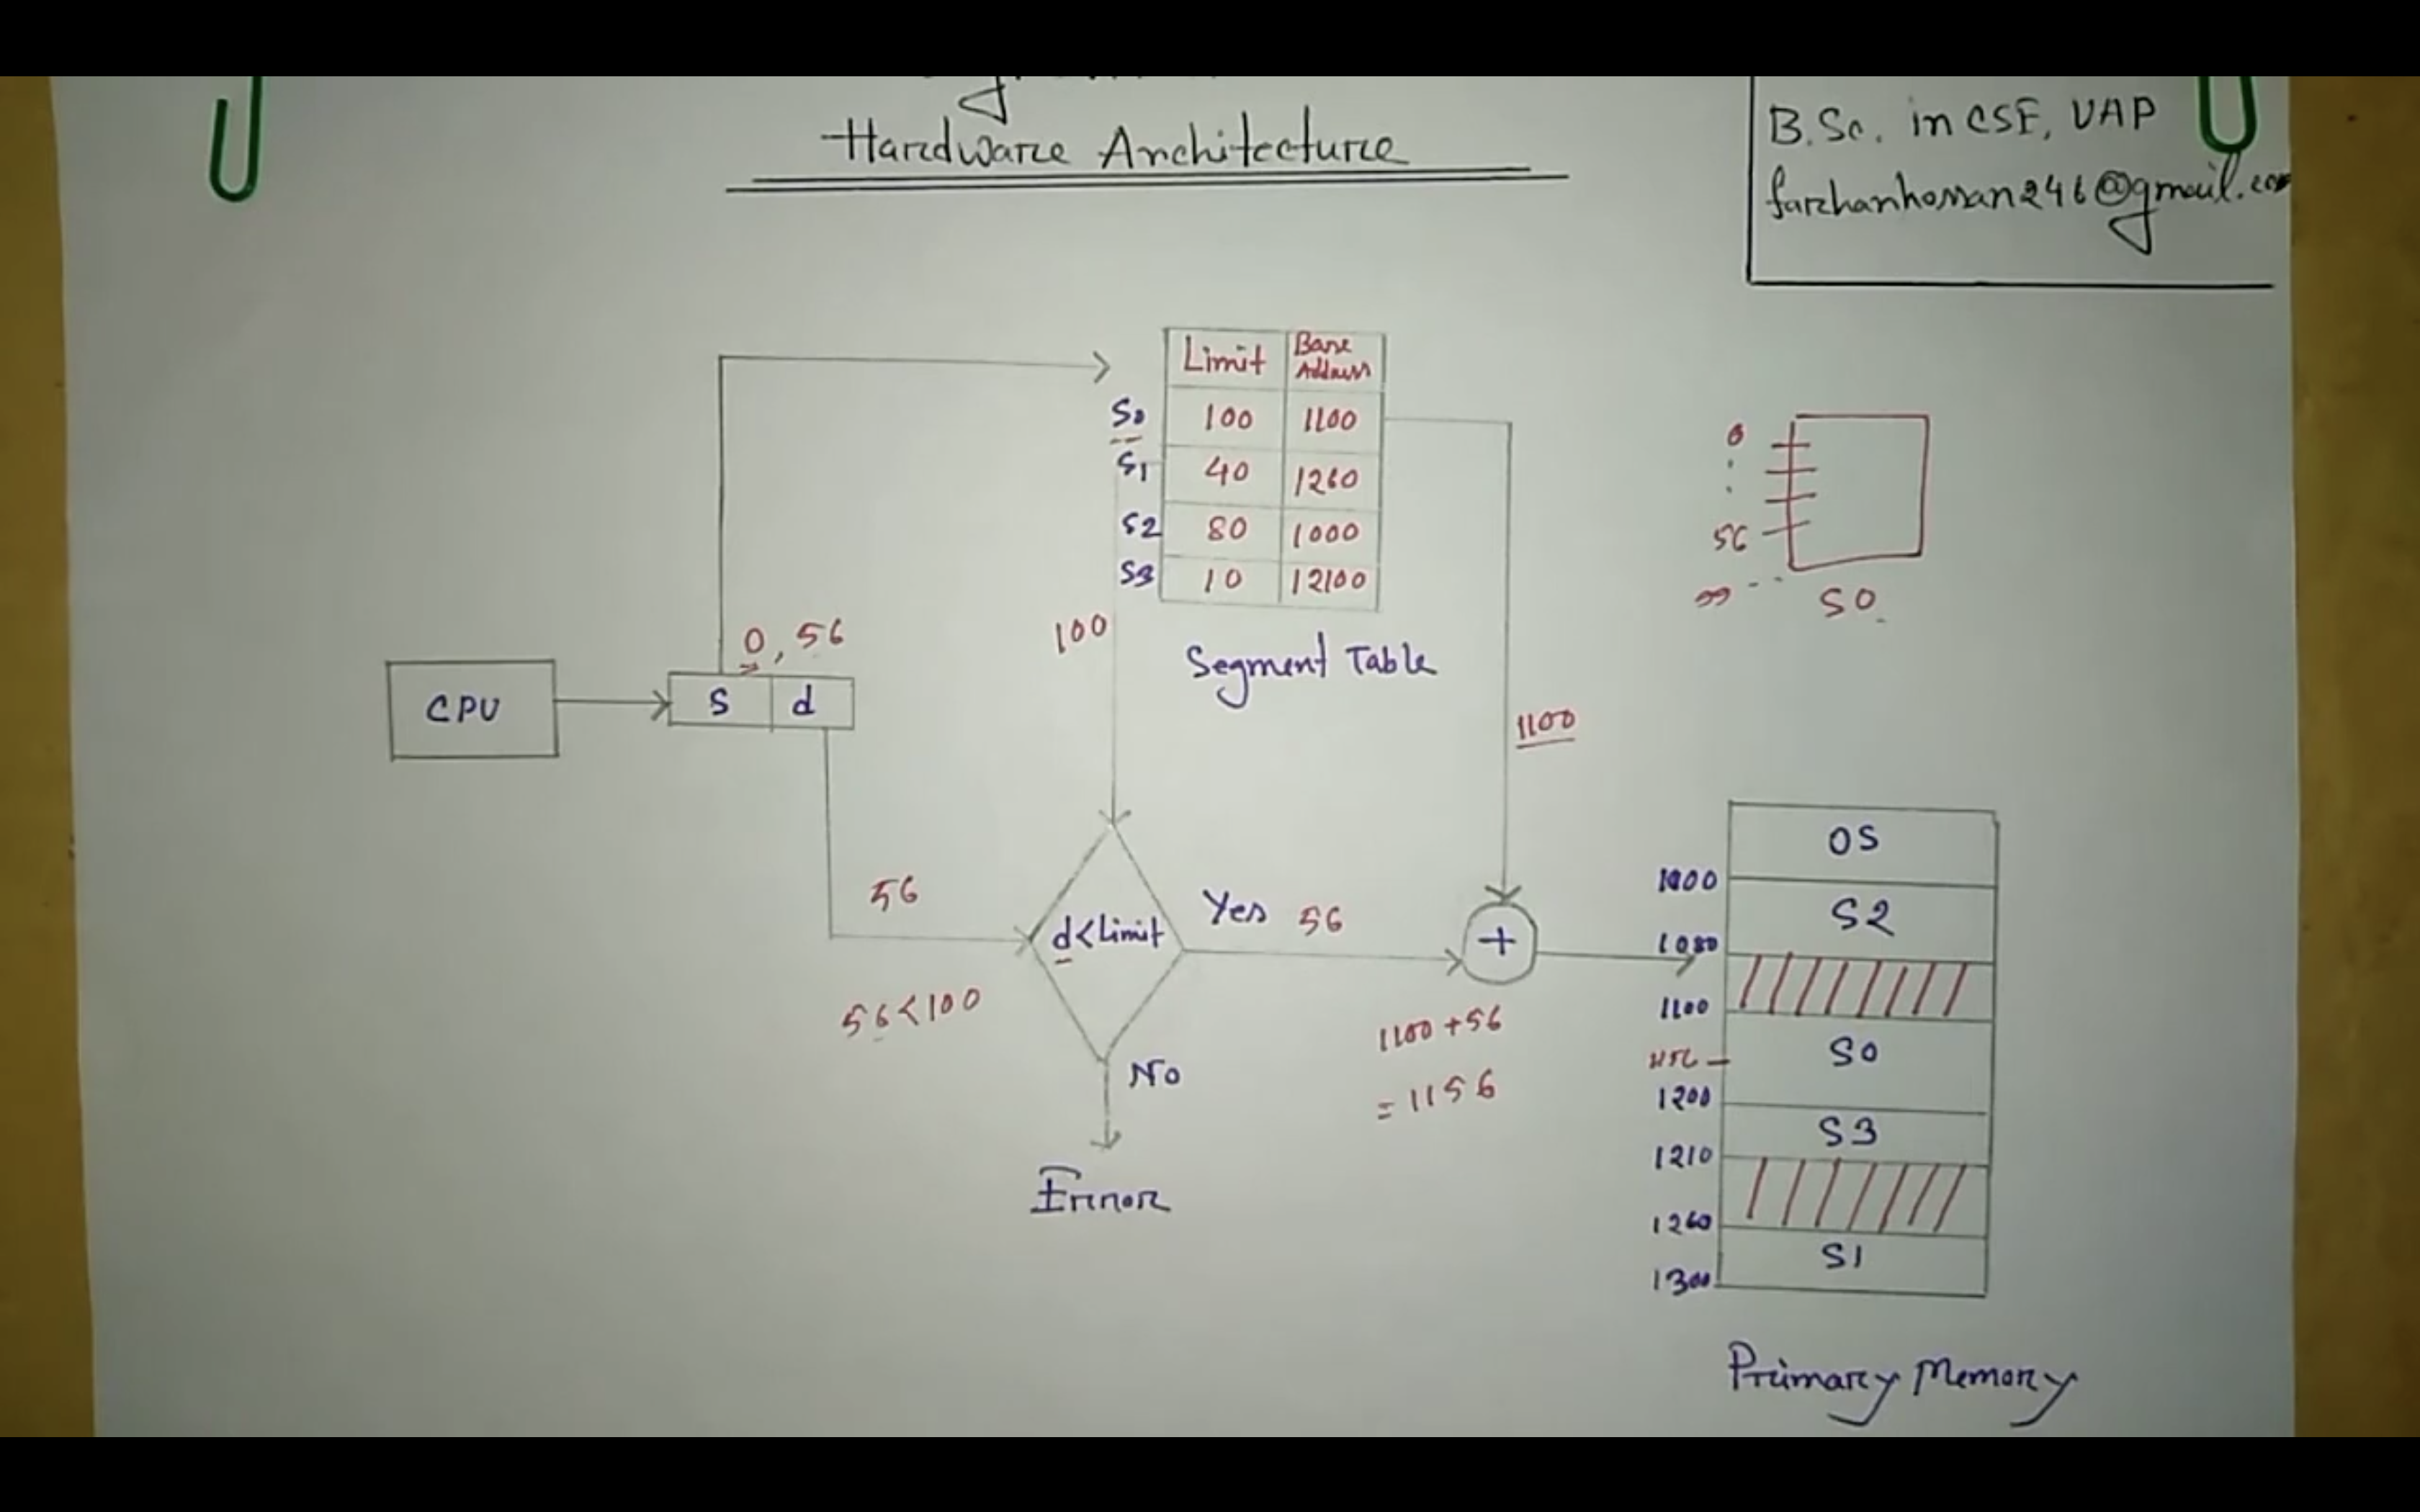 Hardware Architecture
B.Sc. in CSE, UAP
farhanhossan246@gmail.com
Limit Base Address
S0 100 1100
S1 40 1260
S2 80 1000
S3 10 12100
Segment Table
0
56
99
S0
0, 56
CPU
S d
100
1100
56
d<Limit
Yes 56
+
56<100
No
Error
1100+56
=1156
OS
1000
S2
1080
1100
S0
1156
1200
S3
1210
1260
S1
1300
Primary Memory